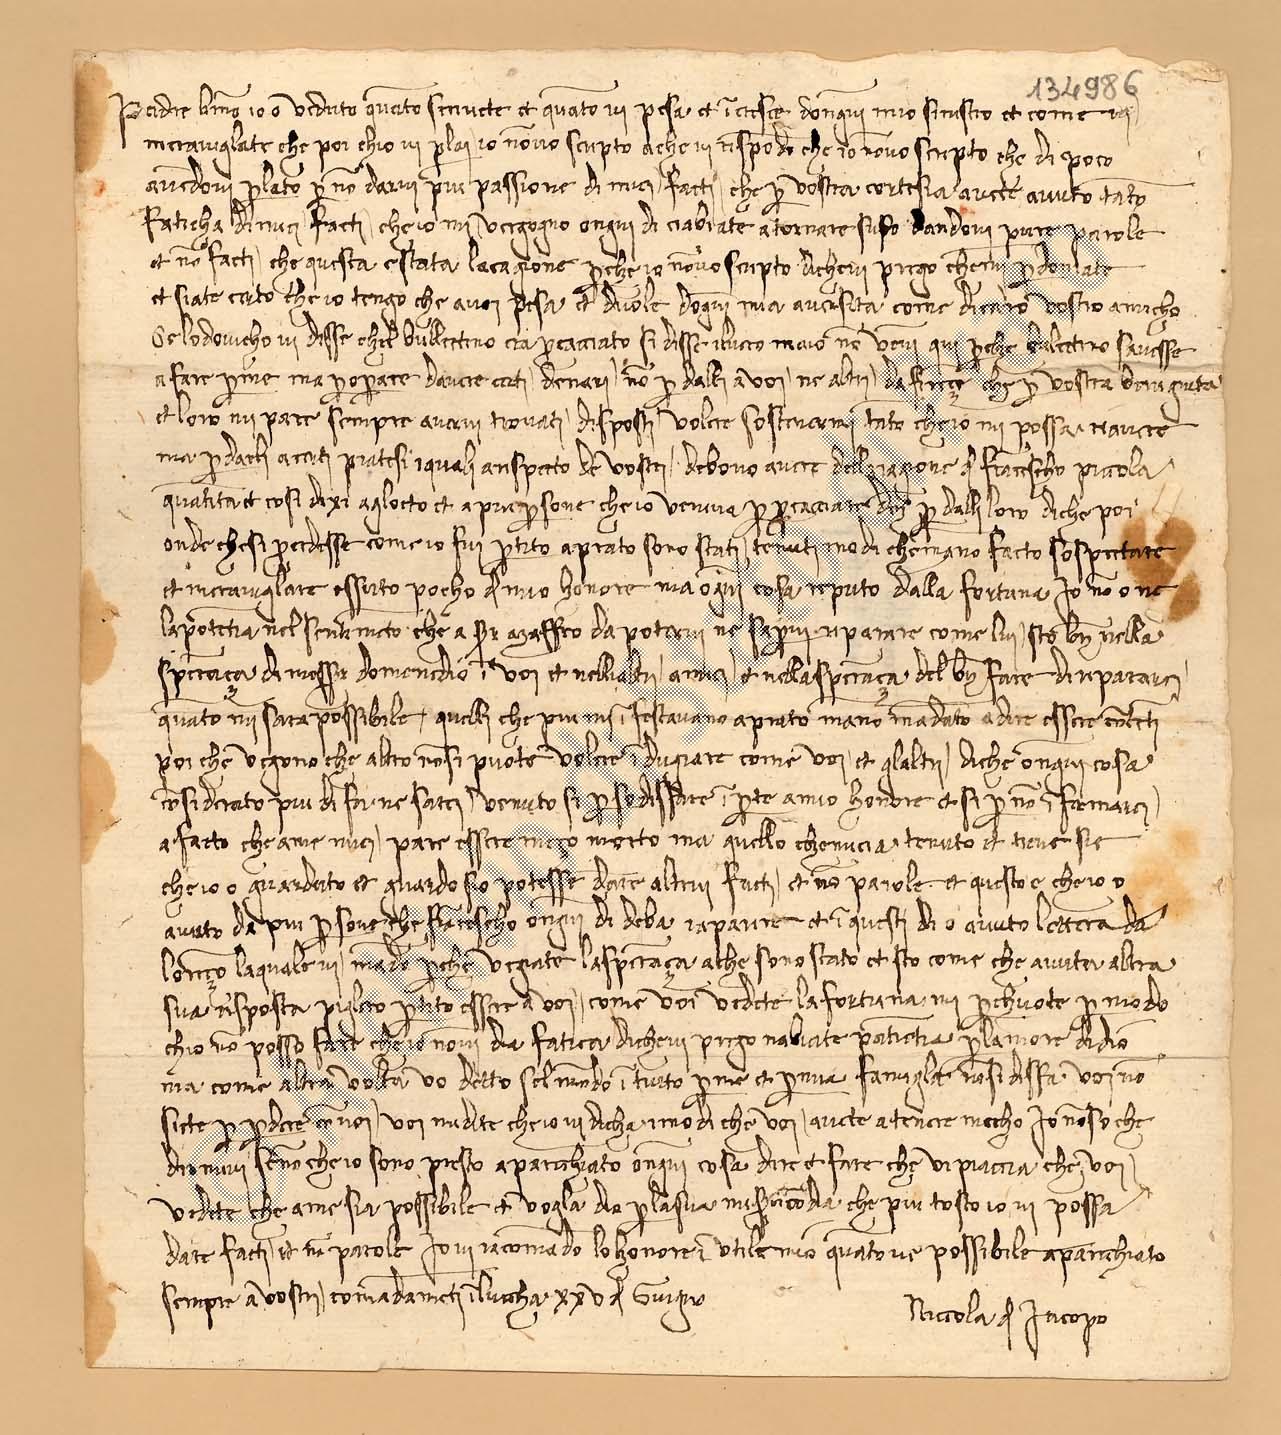 134986
Padre kmo io o veduto quāto scrivete et quāto vi pesa et ī cresce dongni mio sinistro et come vi
meraviglate che poi chio vi plai io nō vo scripto a che vi rispōdo che io nō vo scripto che di poco
avendovi plato p nō darvi piu passione di miei facti che p vostra cortesia avete avuto tāto
faticha di miei facti che io mi vergogno ongni di ciabiate a tornare suso dandovi pure parole
et nō facti che questa e stata la cagione pche io nō vo scripto di chevi prego che mi pdoniate
et siate certo che io tengo che a voi pesa et duole dogni mia aversita come di caro vostro amicho
Se lodovicho vi disse chel bullectino era pcacciato si disse il vero ma io nō vēni qui pche bulectino savesse
a fare pme ma p opare davere certi denari nō p dalli a voi ne altri da firēçe che p vostra benignita
et loro mi pare sempre avervi trovati disposti volere sostenermi tāto che io mi possa riavere
ma p darli a certi pratesi i quali a nspecto de vostri debono avere della ragione di francescho piccola
quātita et cosi dixi a glocto et a piu psone che io veniva p pcacciare dr p dalli loro di che poi
onde che si pcedesse come io fui ptito a prato sono stati tenuti modi che māno facto sospectare
et meraviglare essuto pocho di mio honore ma ogni cosa reputo dalla fortuna Io nō o ne
la potētia nel sentimēto che a s azaffeo da potervi ne sapvi riparare come lui sto bn nella
sperāça di messer domenedio ī voi et nelli altri amici et nella sperāça del bn fare di ripararci
quāto mi sara possibile quelli che piu mi ī festavano a prato māno mādato a dire essere cōtēti
poi che vegono che altro nō si puote volere ī dugiare come voi et glaltri di che ongni cosa
cōsiderato piu di fa ne sarei venuto si p sodisfare ī pte a mio honore et si p nō ī fermarci
a facto che a me miei pare essere meço morto ma quello che mi cia tenuto et tiene sie
che io o guardato et guardo sio potesse dare altrui facti et nō parole et questo e che io o
avuto da piu psone che francescho ongni di deba rapavire et ī questi di o avuto lectera da
lorēço la quale vi mādo pche vegiate la sperāça a che sono stato et sto come che avuta altra
sua risposta piglero ptito essere a voi come voi vedete la fortuna mi pchuote p modo
chio nō posso fare che io nō vi dia fatica di chevi prego nabiate patiētia p lamore di dio
ma come altra volta vo detto sel mōdo ī tucto pme et pmia famigla nō si disfa voi nō
siete p pdere cō noi voi mi dite che io vi dicha i modi che voi avete a tenere mecho Io nō so che
dirmivi se nō che io sono presto aparechiato ongni cosa dire et fare che vi piaccia che voi
vedete che a me sia possibile et vogla dio p la sua misicordia che piu tosto io vi possa
dare facti et nō parole Io vi racomādo lo honore ī utile mio quāto ve possibile aparechiato
sempre a vostri comādamēti ī luccha xxv di Giugno
Niccola di Jacopo